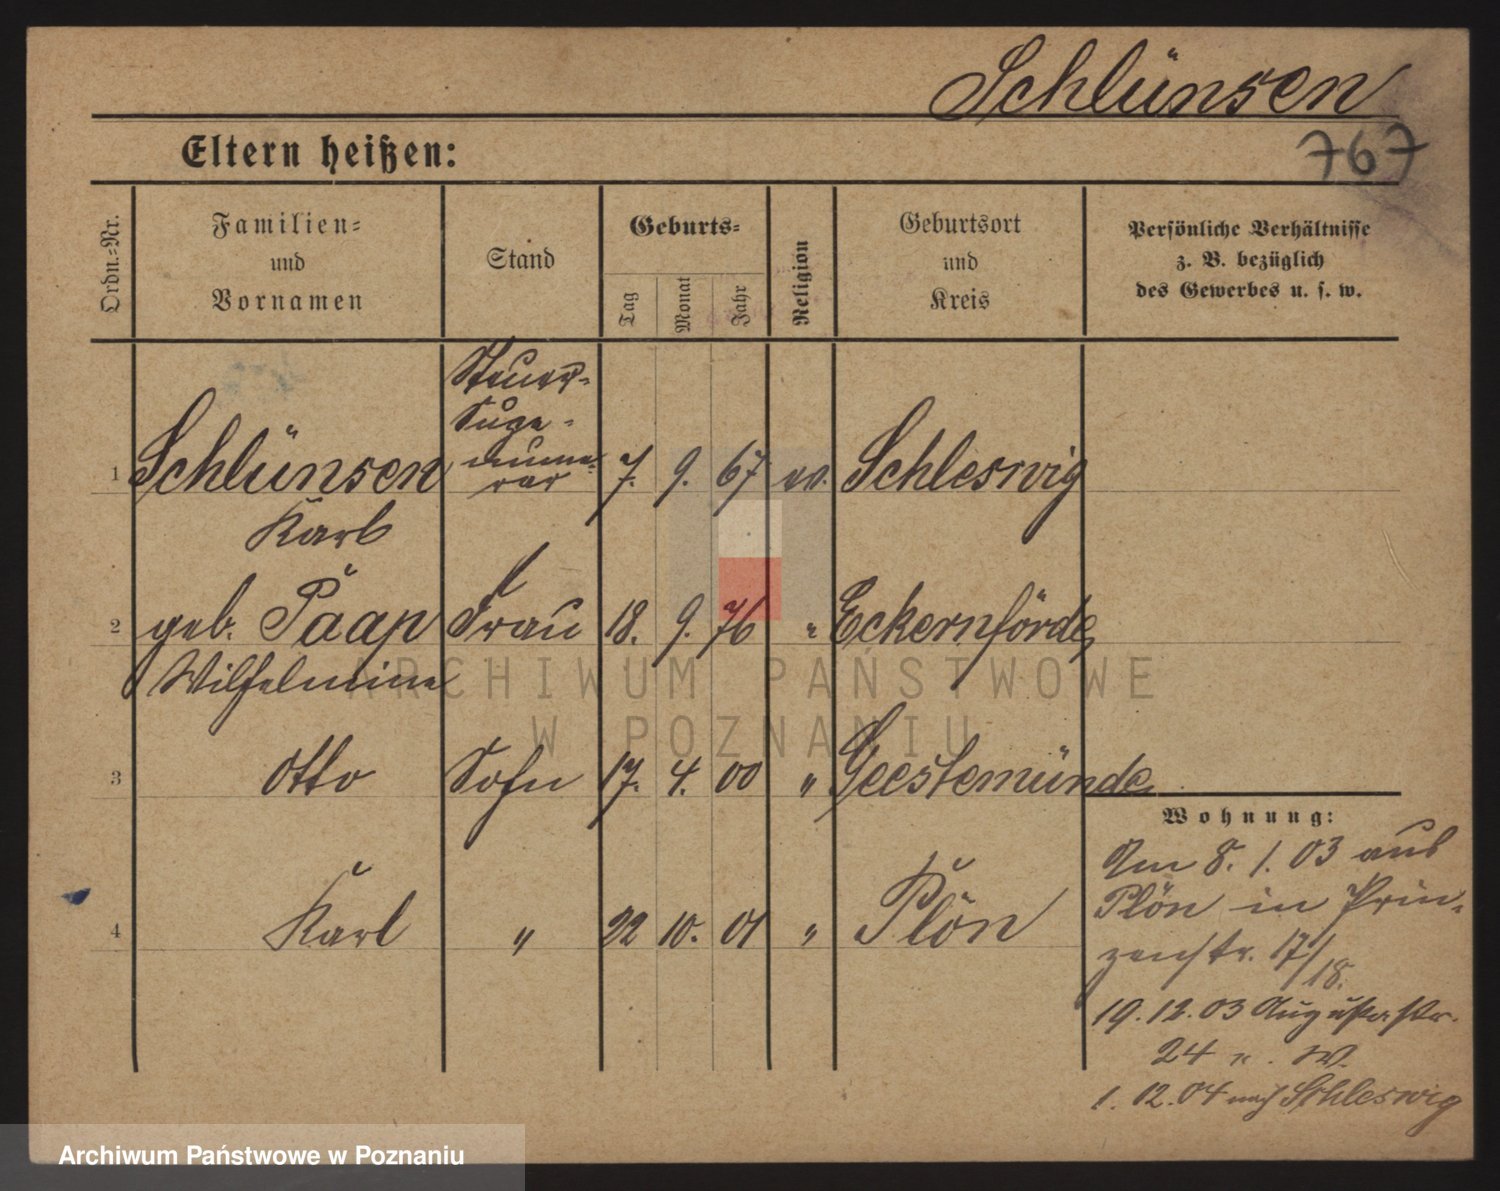 Schlünsen
767
Eltern heißen:
Ordn.-Nr.
Familien-
und
Vornamen
Stand
Geburts-
Tag
Monat
Jahr
Religion
Geburtsort
und
Kreis
Persönliche Verhältnisse
z. B. bezüglich
des Gewerbes u. s. w.
Steuer-
nume-
rar
1 Schlünsen 7. 9. 67 ev. Schleswig
Karl
2 geb. Paap Frau 18. 9. 76 " Eckernförde
Wilhelmine
3 Otto Sohn 17. 4. 00 " Geestemünde
4 Karl " 22 10. 01 " Plön
Wohnung:
Am 8. 1. 03 aus
Plön in Prin-
zenstr. 17/18.
19.12.03 Augustastr.
24 n. W.
1. 12. 04 nach Schleswig
ARCHIWUM PAŃSTWOWE
W POZNANIU
Archiwum Państwowe w Poznaniu